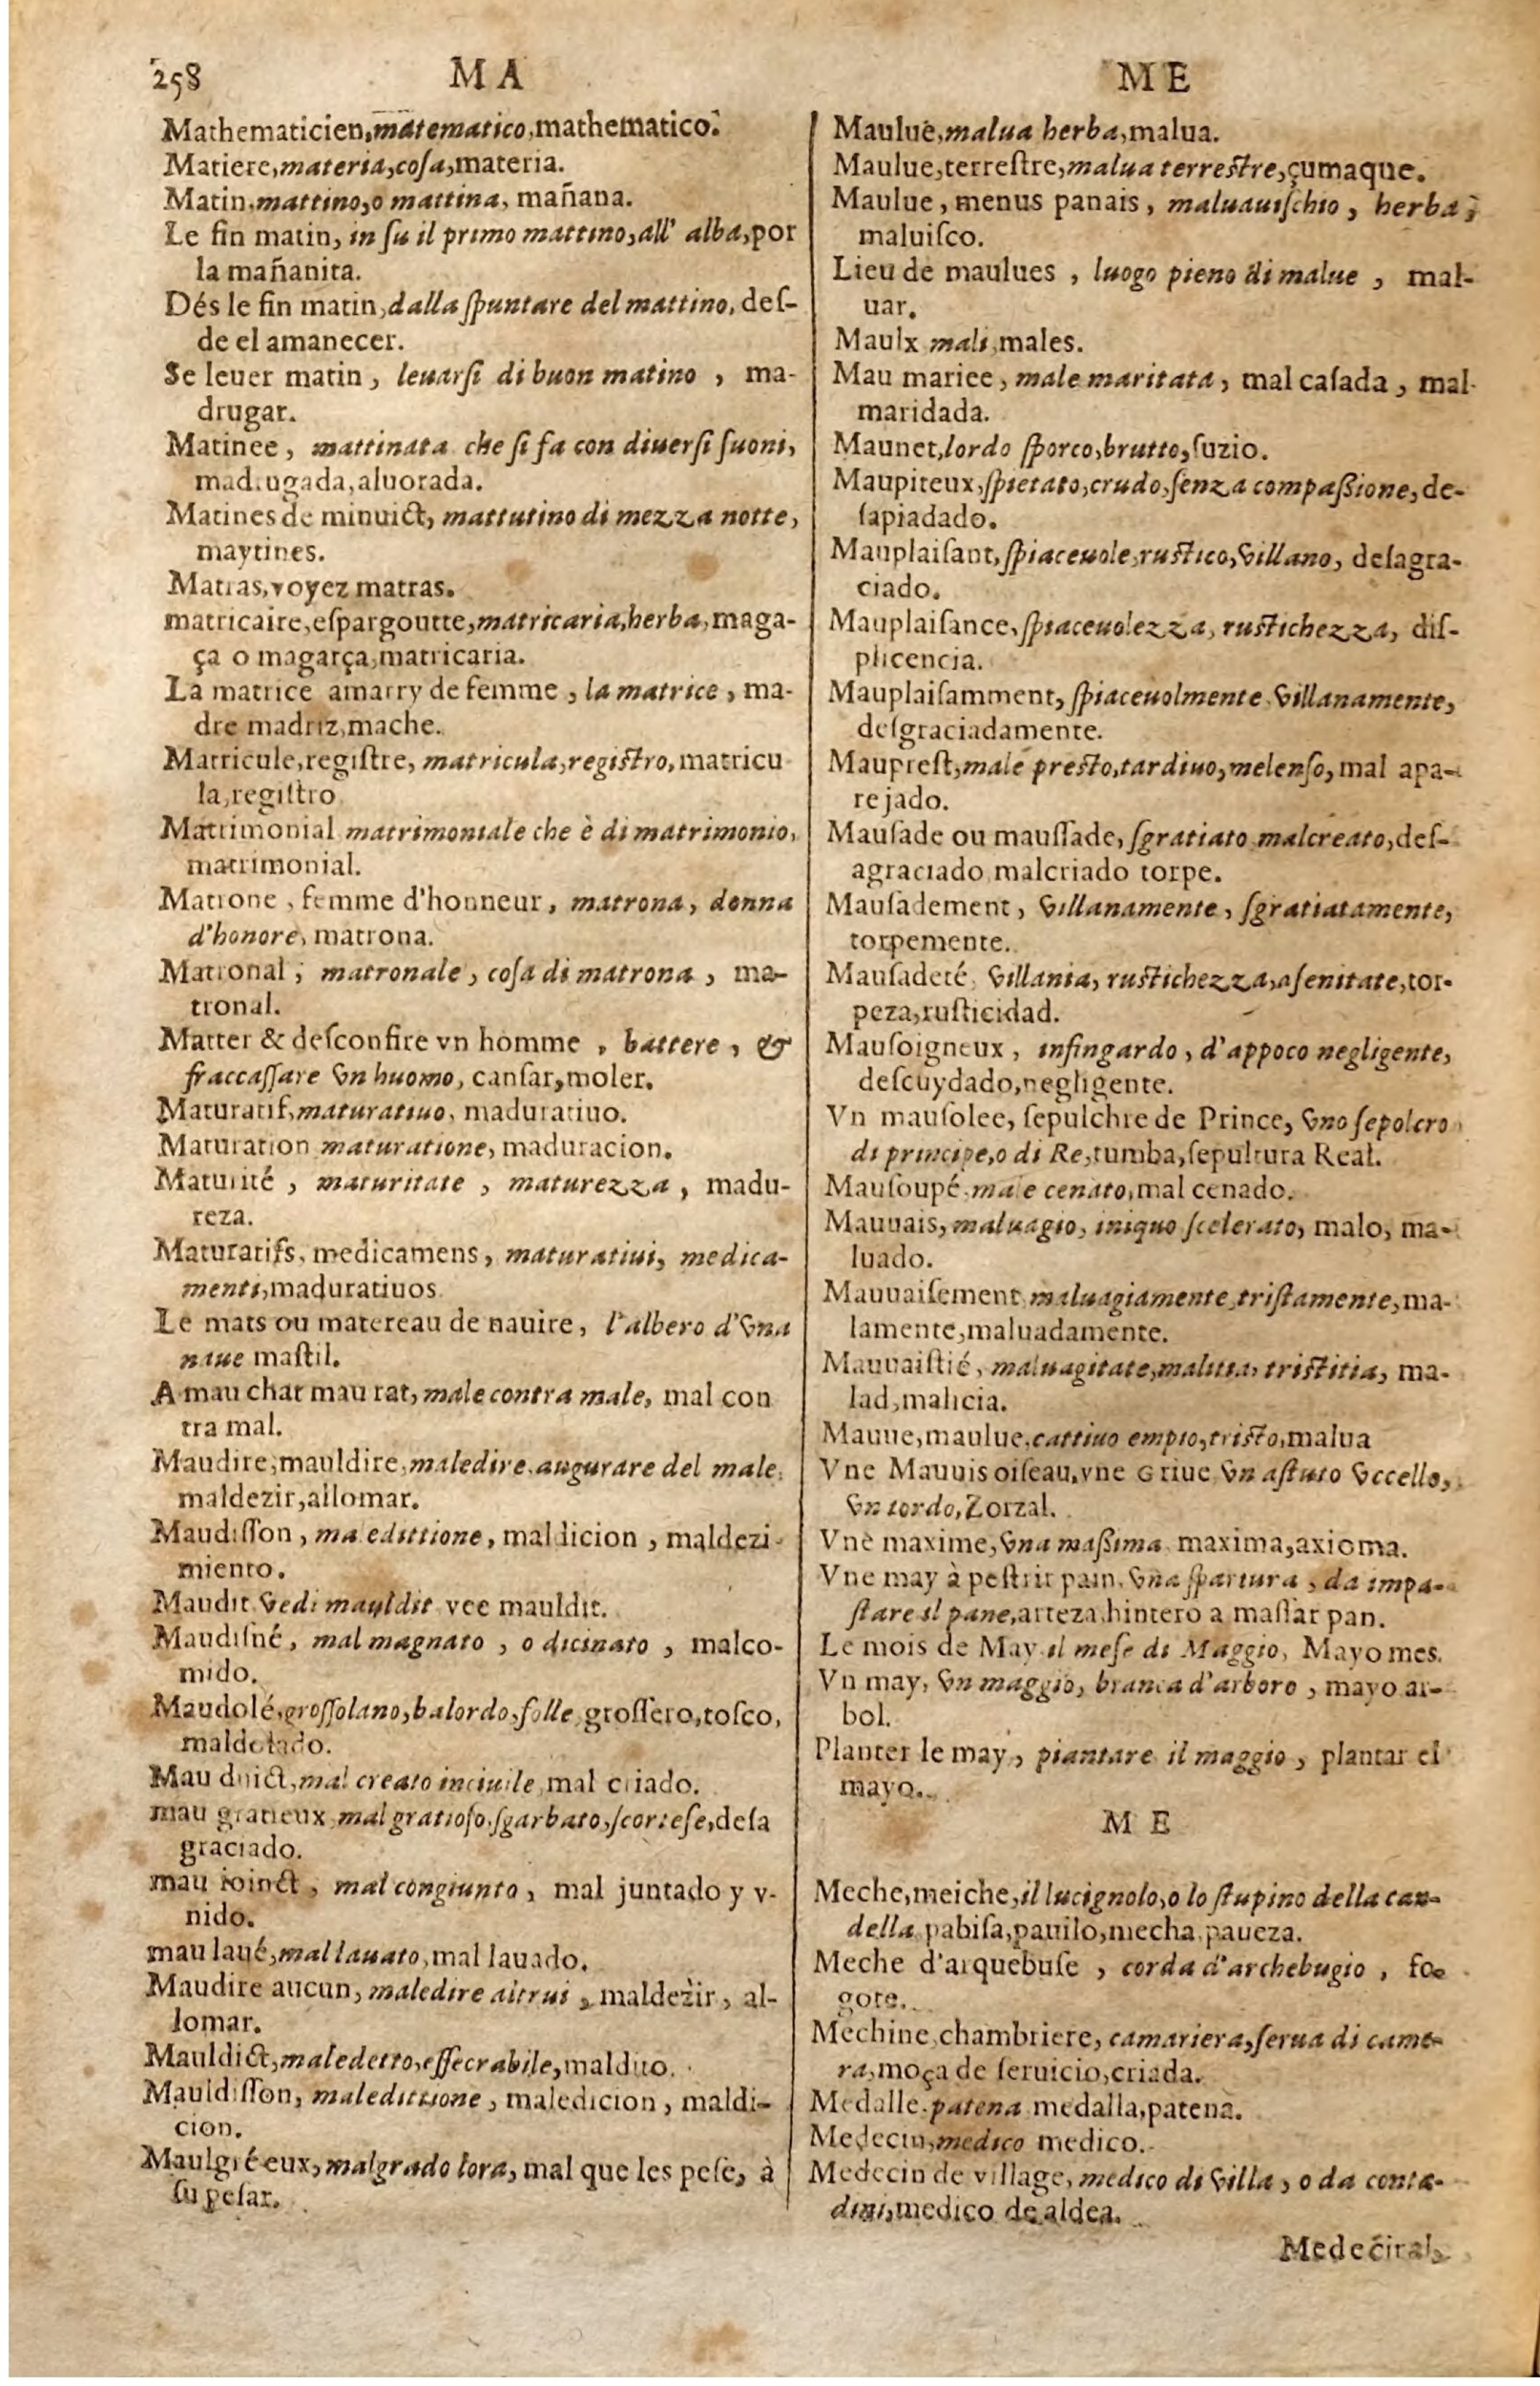 258 MA ME
Mathematicien, matematico, mathematico.
Matiere, materia, coſa, materia.
Matin, mattino, o mattina, mañana.
Le fin matin, in ſu il primo mattino, all' alba, por
la mañanita.
Dés le fin matin, dalla ſpuntare del mattino, deſ-
de el amanecer.
Se leuer matin, leuarſi di buon matino, ma-
drugar.
Matinee, mattinata che ſi fa con diuerſi ſuoni,
madrugada, aluorada.
Matines de minuict, mattutino di mezza notte,
maytines.
Matias, voyez matras.
matricaire, eſpargoutte, matricaria, herba, maga-
ça o magarça, matricaria.
La matrice amarry de femme, la matrice, ma-
dre madriz, mache.
Matricule, regiſtre, matricula, regiſtro, matricu
la, regiſtro
Matrimonial matrimoniale che è di matrimonio,
matrimonial.
Matrone, femme d'honneur, matrona, donna
d'honore, matrona.
Matronal; matronale, coſa di matrona, ma-
tronal.
Matter & deſconfire vn homme, battere, &
fraccaſſare vn huomo, canſar, moler.
Maturatif, maturatiuo, maduratiuo.
Maturation maturatione, maduracion.
Maturité, maturitate, maturezza, madu-
reza.
Maturatifs, medicamens, maturatiui, medica-
menti, maduratiuos
Le mats ou matereau de nauire, l'albero d'vna
naue maſtil.
A mau chat mau rat, male contra male, mal con
tra mal.
Maudire, mauldire, maledire, augurare del male,
maldezir, allomar.
Maudiſſon, maledittione, maldicion, maldezi-
miento.
Maudit vedi mauldit vee mauldit.
Maudiſné, mal magnato, o dicinato, malco-
mido.
Maudolé, groſſolano, balordo, folle groſſero, toſco,
maldolado.
Mau duict, mal creato inciuile mal criado.
mau gratieux mal gratioſo, ſgarbato, ſcorteſe, deſa
graciado.
mau ioinct, mal congiunto, mal juntado y v-
nido.
mau laué, mal lauato, mal lauado.
Maudire aucun, maledire altrui, maldezir, al-
lomar.
Mauldict, maledetto, eſſecrabile, maldito.
Mauldiſſon, maledittione, maledicion, maldi-
cion.
Maulgré eux, malgrado lora, mal que les peſe, à
ſu peſar.
Maulue, malua herba, malua.
Maulue, terreſtre, malua terreſtre, çumaque.
Maulue, menus panais, maluauiſchio, herba,
maluiſco.
Lieu de maulues, luogo pieno di malue, mal-
uar.
Maulx mali, males.
Mau mariee, male maritata, mal caſada, mal-
maridada.
Maunet, lordo ſporco, brutto, ſuzio.
Maupiteux, ſpietato, crudo, ſenza compaßione, de-
ſapiadado.
Mauplaiſant, ſpiaceuole, ruſtico, villano, deſagra-
ciado.
Mauplaiſance, ſpiaceuolezza, ruſtichezza, diſ-
plicencia.
Mauplaiſamment, ſpiaceuolmente villanamente,
deſgraciadamente.
Maupreſt, male preſto, tardiuo, melenſo, mal apa-
rejado.
Mauſade ou mauſſade, ſgratiato malcreato, deſ-
agraciado malcriado torpe.
Mauſadement, villanamente, ſgratiatamente,
torpemente.
Mauſadeté, villania, ruſtichezza, aſenitate, tor-
peza, ruſticidad.
Mauſoigneux, infingardo, d'appoco negligente,
deſcuydado, negligente.
Vn mauſolee, ſepulchre de Prince, vno ſepolcro
di principe, o di Re, tumba, ſepultura Real.
Mauſoupé male cenato, mal cenado.
Mauuais, maluagio, iniquo ſcelerato, malo, ma-
luado.
Mauuaiſement maluagiamente, triſtamente, ma-
lamente, maluadamente.
Mauuaiſtié, maluagitate, malitia, triſtitia, ma-
lad, malicia.
Mauue, maulue, cattiuo empio, triſto, malua
Vne Mauuis oiſeau, vne Griue vn aſtuto vccello,
vn tordo, Zorzal.
Vne maxime, vna maßima maxima, axioma.
Vne may à peſtrir pain, vna ſpartura, da impa-
ſtare il pane, arteza, hintero a maſſar pan.
Le mois de May il meſe di Maggio, Mayo mes.
Vn may, vn maggio, branca d'arboro, mayo ar-
bol.
Planter le may, piantare il maggio, plantar el
mayo.
ME
Meche, meiche, il lucignolo, o lo ſtupino della can-
della pabiſa, pauilo, mecha, paueza.
Meche d'arquebuſe, corda d'archebugio, fo-
gote.
Mechine, chambriere, camariera, ſerua di came-
ra, moça de ſeruicio, criada.
Medalle, patena medalla, patena.
Medecin, medico medico.
Medecin de village, medico di villa, o da conta-
dini, medico de aldea.
Medecinal,